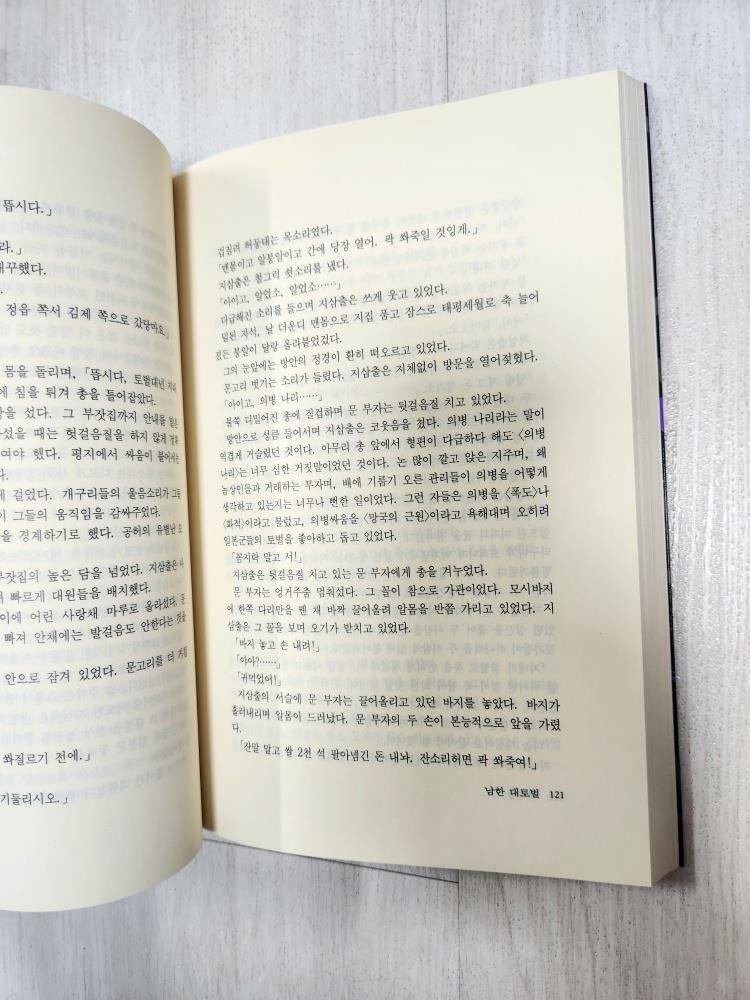 뜹시다.」
라.」
대꾸했다.
정읍 쪽서 김제 쪽으로 갔담마요.」
몸을 돌리며, 「뜹시다, 토벌대넌
에 침을 튀겨 총을 들어잡았다.
을 섰다. 그 부잣집까지 안내를 맡은
섰을 때는 헛걸음질을 하지 않게 정확
여야 했다. 평지에서 싸움이 붙어서는
다.
게 걸었다. 개구리들의 울음소리가 그득
이 그들의 움직임을 감싸주었다.
을 경계하기로 했다. 공허의 유별난
부잣집의 높은 담을 넘었다. 지삼출은
빠르게 대원들을 배치했다.
이에 어린 사랑채 마루로 올라섰다. 문
빠져 안채에는 발걸음도 안한다는 것을
안으로 잠겨 있었다. 문고리를 더
쏴질르기 전에.」
기둘리시오.」
겁질려 허둥대는 목소리였다.
「맨몸이고 알봉알이고 간에 당장 열어. 팍 쏴죽일 것잉게.」
지삼출은 철그럭 쇳소리를 냈다.
「아이고, 알었소, 알었소……」
다급해진 소리를 들으며 지삼출은 쓰게 웃고 있었다.
덜된 자석, 날 더운디 맨몸으로 지집 품고 잠스로 태평세월로 축 늘어
졌든 봉알이 달랑 올라붙었겄다.
그의 눈앞에는 방안의 정경이 환히 떠오르고 있었다.
문고리 벗기는 소리가 들렸다. 지삼출은 지체없이 방문을 열어젖혔다.
「아이고, 의병 나리……」
불쑥 디밀어진 총에 질겁하며 문 부자는 뒷걸음질 치고 있었다.
방안으로 성큼 들어서며 지삼출은 코웃음을 쳤다. 의병 나리라는 말이
역겹게 거슬렸던 것이다. 아무리 총 앞에서 형편이 다급하다 해도 〈의병
나리〉는 너무 심한 거짓말이었던 것이다. 논 많이 깔고 앉은 지주며, 왜
농상인들과 거래하는 부자며, 배에 기름기 오른 관리들이 의병을 어떻게
생각하고 있는지는 너무나 뻔한 일이었다. 그런 자들은 의병을 〈폭도〉나
〈화적〉이라고 불렀고, 의병싸움을 〈망국의 근원〉이라고 욕해대며 오히려
일본군들의 토벌을 좋아하고 돕고 있었다.
「꼼지락 말고 서!」
지삼출은 뒷걸음질 치고 있는 문 부자에게 총을 겨누었다.
문 부자는 엉거주춤 멈춰섰다. 그 꼴이 참으로 가관이었다. 모시바지
에 한쪽 다리만을 꿴 채 바짝 끌어올려 알몸을 반쯤 가리고 있었다. 지
삼출은 그 꼴을 보며 오기가 받치고 있었다.
「바지 놓고 손 내려!」
「아아?……」
「귀먹었어!」
지삼출의 서슬에 문 부자는 끌어올리고 있던 바지를 놓았다. 바지가
흘러내리며 알몸이 드러났다. 문 부자의 두 손이 본능적으로 앞을 가렸
다.
「잔말 말고 쌀 2천 석 팔아넘긴 돈 내놔. 잔소리허면 팍 쏴죽여!」
남한 대토벌 121